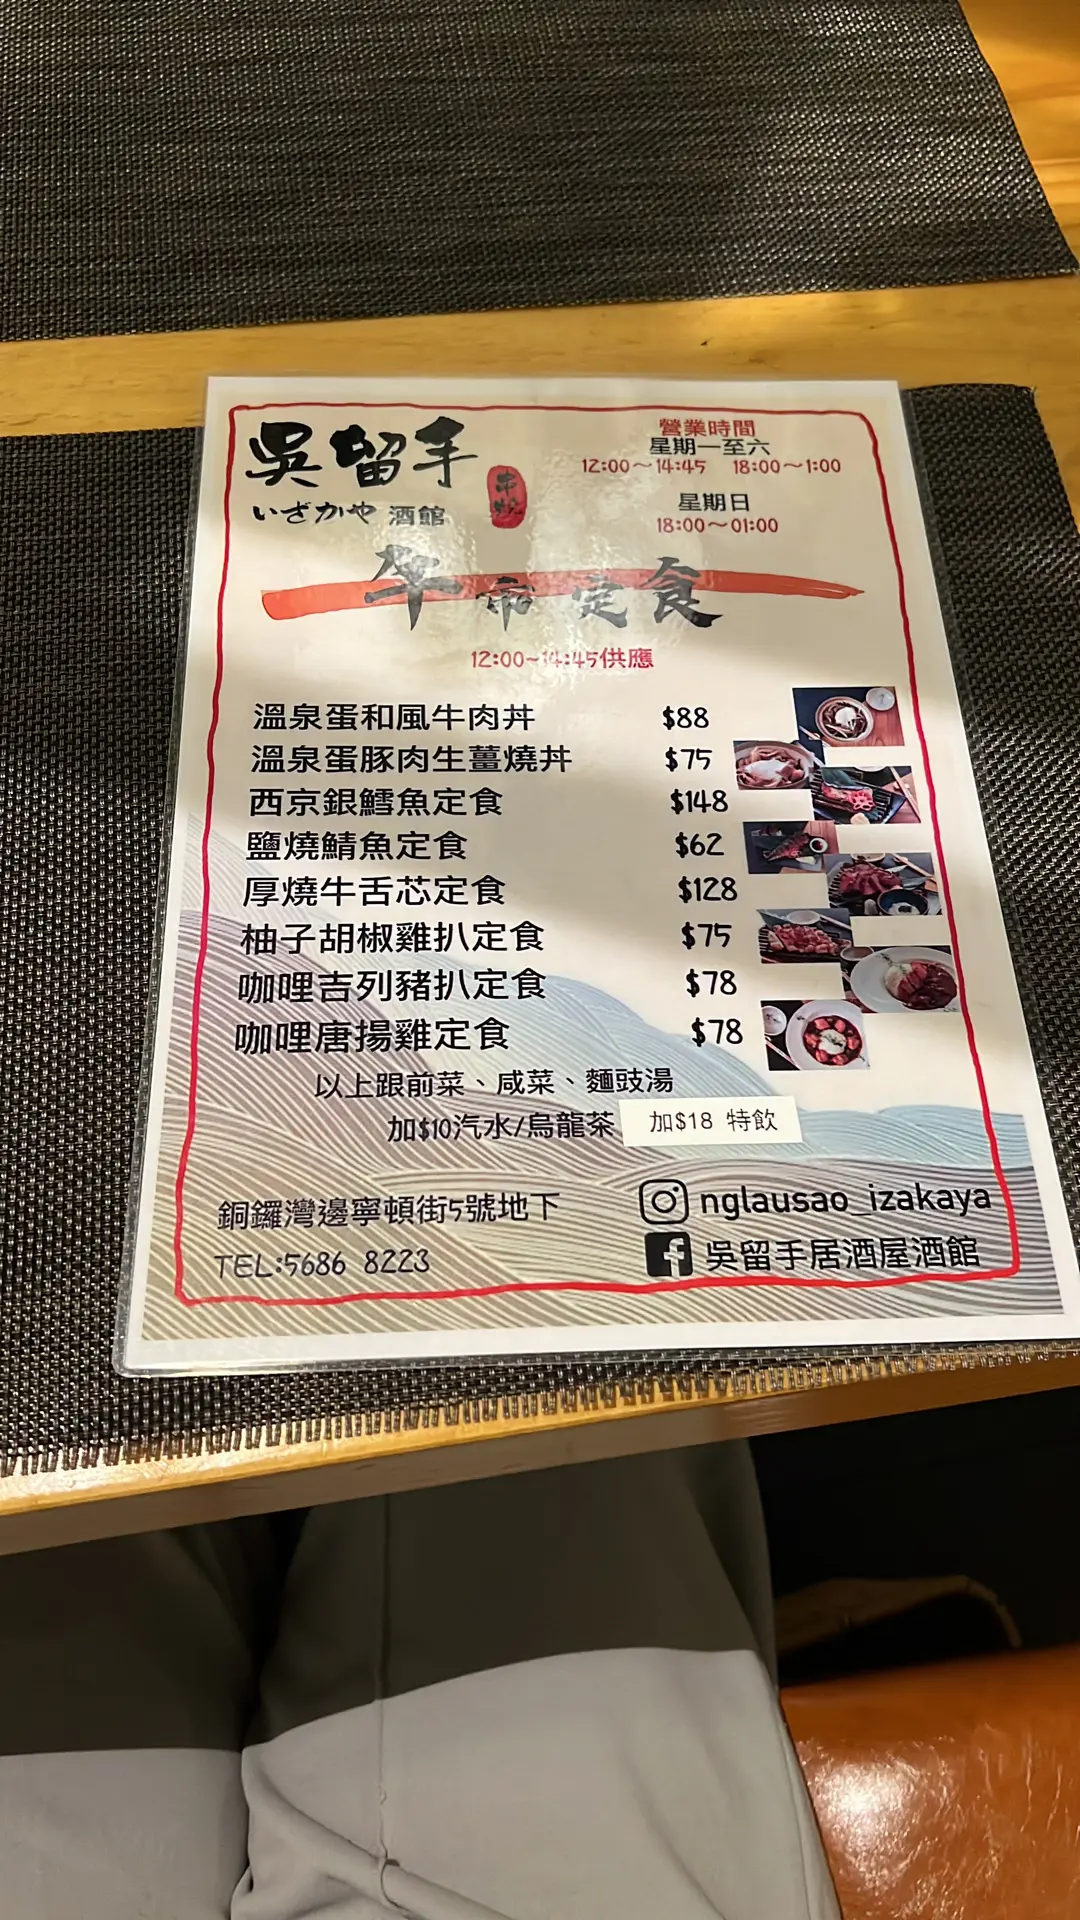 吳留手
いざかや 酒館
串燒
營業時間
星期一至六
12:00～14:45 18:00～1:00
星期日
18:00～01:00
午市定食
12:00~14:45供應
溫泉蛋和風牛肉丼 $88
溫泉蛋豚肉生薑燒丼 $75
西京銀鱈魚定食 $148
鹽燒鯖魚定食 $62
厚燒牛舌芯定食 $128
柚子胡椒雞扒定食 $75
咖哩吉列豬扒定食 $78
咖哩唐揚雞定食 $78
以上跟前菜、咸菜、麵豉湯
加$10汽水/烏龍茶 加$18 特飲
銅鑼灣邊寧頓街5號地下
TEL:5686 8223
nglausao_izakaya
吳留手居酒屋酒館